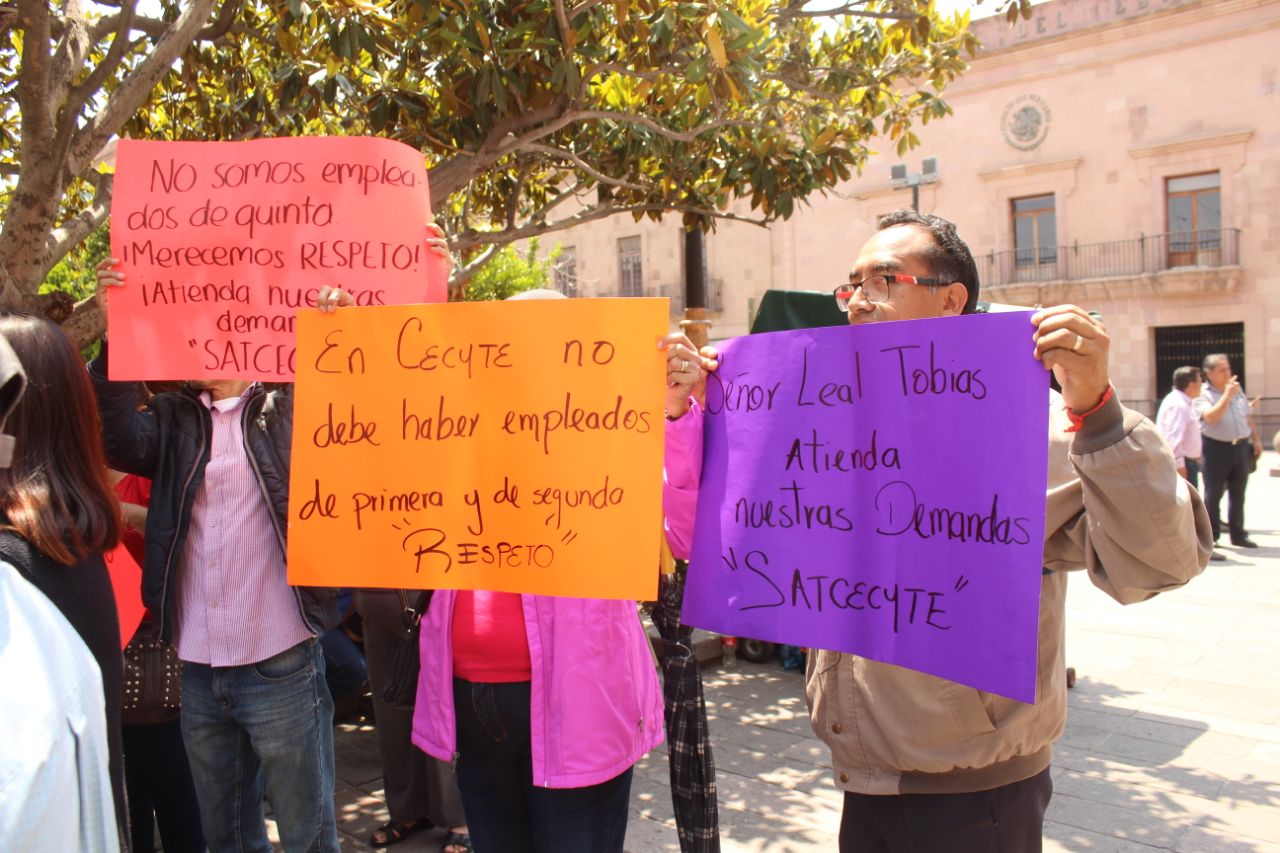 No somos emplea-
dos de quinta.
¡Merecemos RESPETO!
¡Atienda nuestras
deman
"SATCEC
En CECYTE no
debe haber empleados
de primera y de segunda
"RESPETO"
Señor Leal Tobias
Atienda
nuestras Demandas
"SATCECYTE"